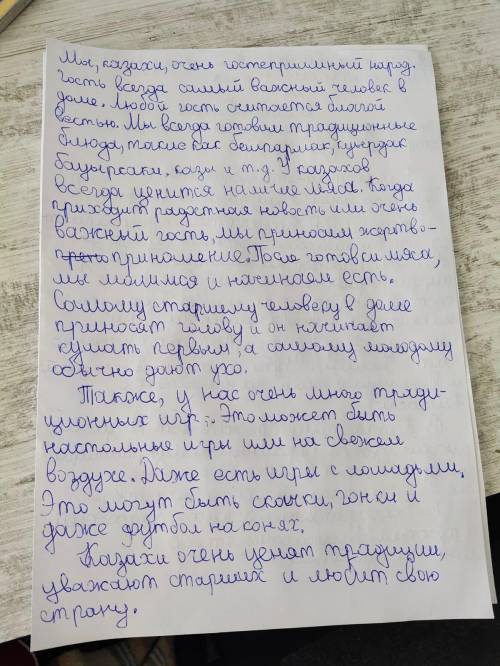 Мы, казахи, очень гостеприимный народ.
Гость всегда самый важный человек в
доме. Любой гость считается благой
вестью. Мы всегда готовим традиционные
блюда, такие как бешпармак, куырдак
бауырсаки, казы и т.д. У казахов
всегда ценится наличие мяса. Когда
приходит радостная новость или очень
важный гость, мы приносим жертво-
приношение. После готовки мяса,
мы молимся и начинаем есть.
Самому старшему человеку в доме
приносят голову и он начинает
кушать первым, а самому молодому
обычно дают ухо.
Также, у нас очень много тради-
ционных игр. Это может быть
настольные игры или на свежем
воздухе. Даже есть игры с лошадьми.
Это могут быть скачки, гонки и
даже футбол на конях.
Казахи очень ценят традиции,
уважают старших и любит свою
страну.